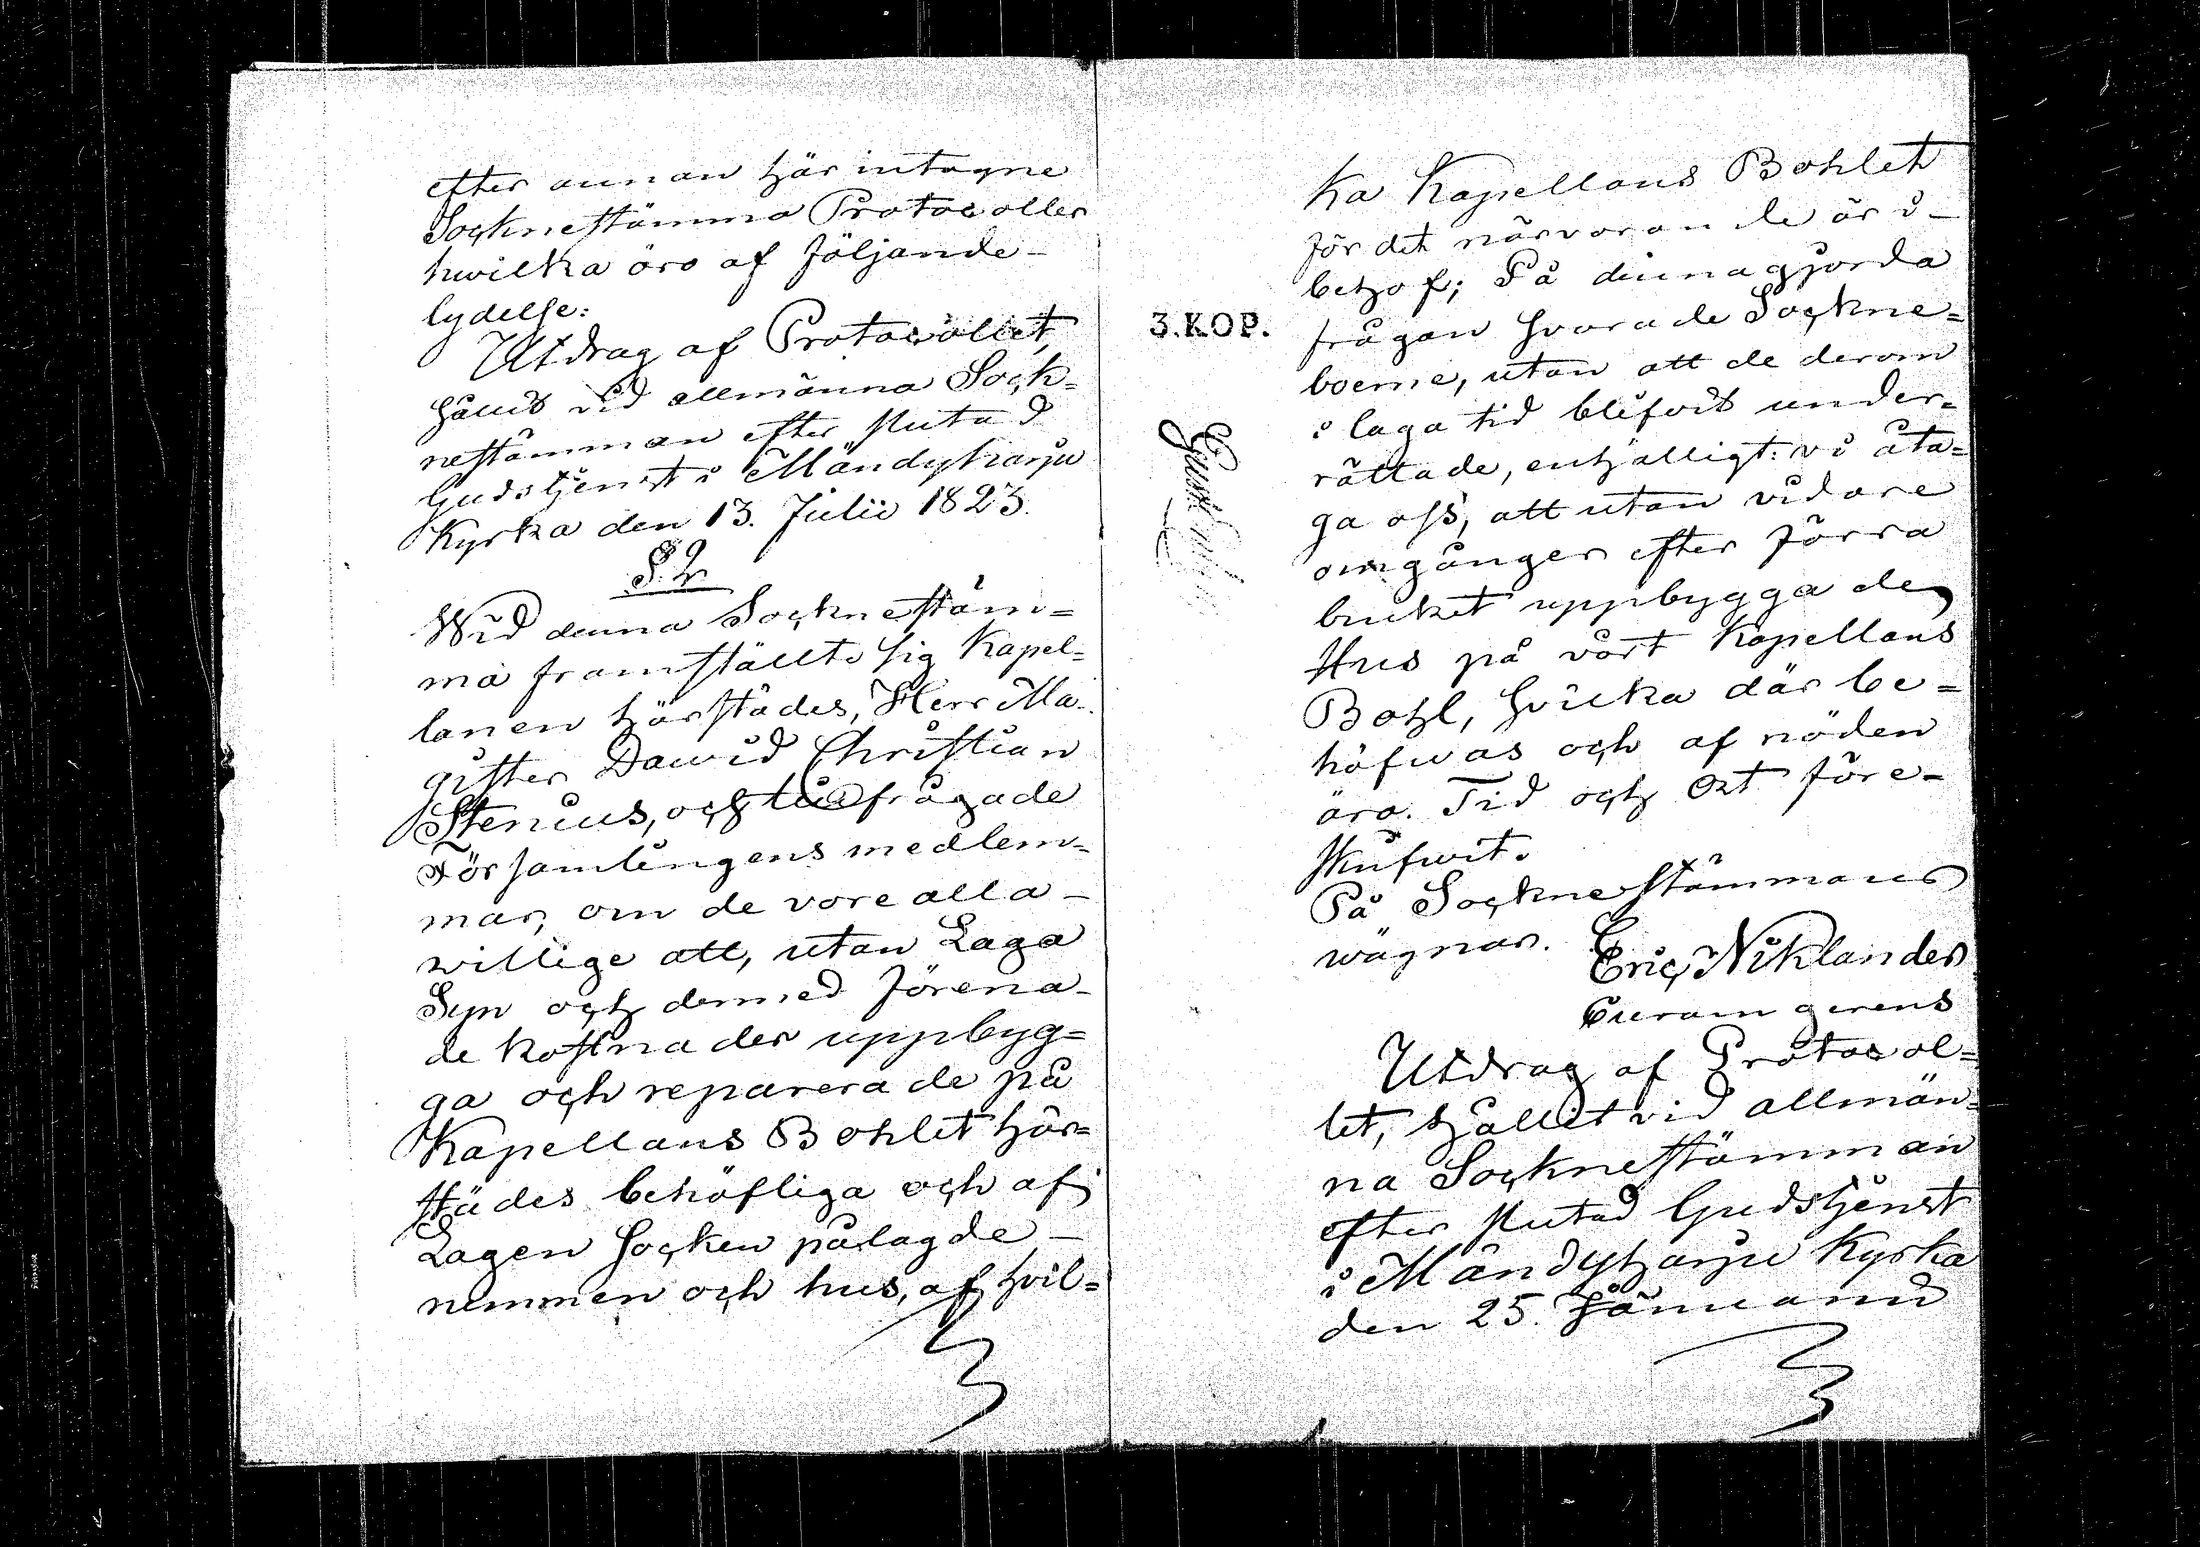 efter annan här intagne
Socknestämma Protocoller
hwilka äro af följande
lydelse:
Utdrag af Protocollet,
hållit vid allmänna Sock=
nestämman efter slutad
Gudstjenst i Mändyharju
Kyrka den 13. Julii 1823.
§. 2
Wid denna Socknestäm=
ma framstälte sig Kapel=
lanen härstädes, Herr Ma=
gister Dawid Christian
Stenius, och tillfrågade
Församlingens medlem=
mar, om de vore alla
willige att, utan Laga
Syn och dermed förena-
de kostnader uppbyg=
ga och reparera de på
Kapellans Bohlet här=
städes behöfliga och af
Lagen Socken pålagde
rummen och hus, af hvil=
ka Kapellans Bohlet
för det närvarande är i
behof; På denna gjorda
3.KOP.
frågan svarade Sockne=
boerne, utan att de derom
i laga tid blifvit under=
rättade, enhälligt: vi åta=
ga oss, att utan vidare
omgånger efter förra
bruket uppbygga de
Hus på vårt Kapellans
Bohl, hvilka där be=
höfwas och af nöden
äro. Tid och Ort före-
skrifwit.
På Sockne stämmans
wägnar.
Eric Niklander
Curam gerens
Utdrag af Protocol=
let, hållit vid allmän=
na Socknestämman
efter slutad Gudstjenst
i Mändyharju Kyrka
den 25. Januarii